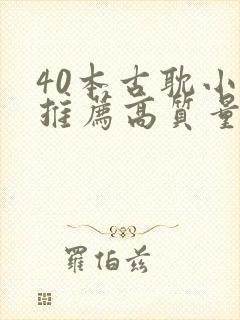 40本古耽小
推薦高質量
羅伯茲